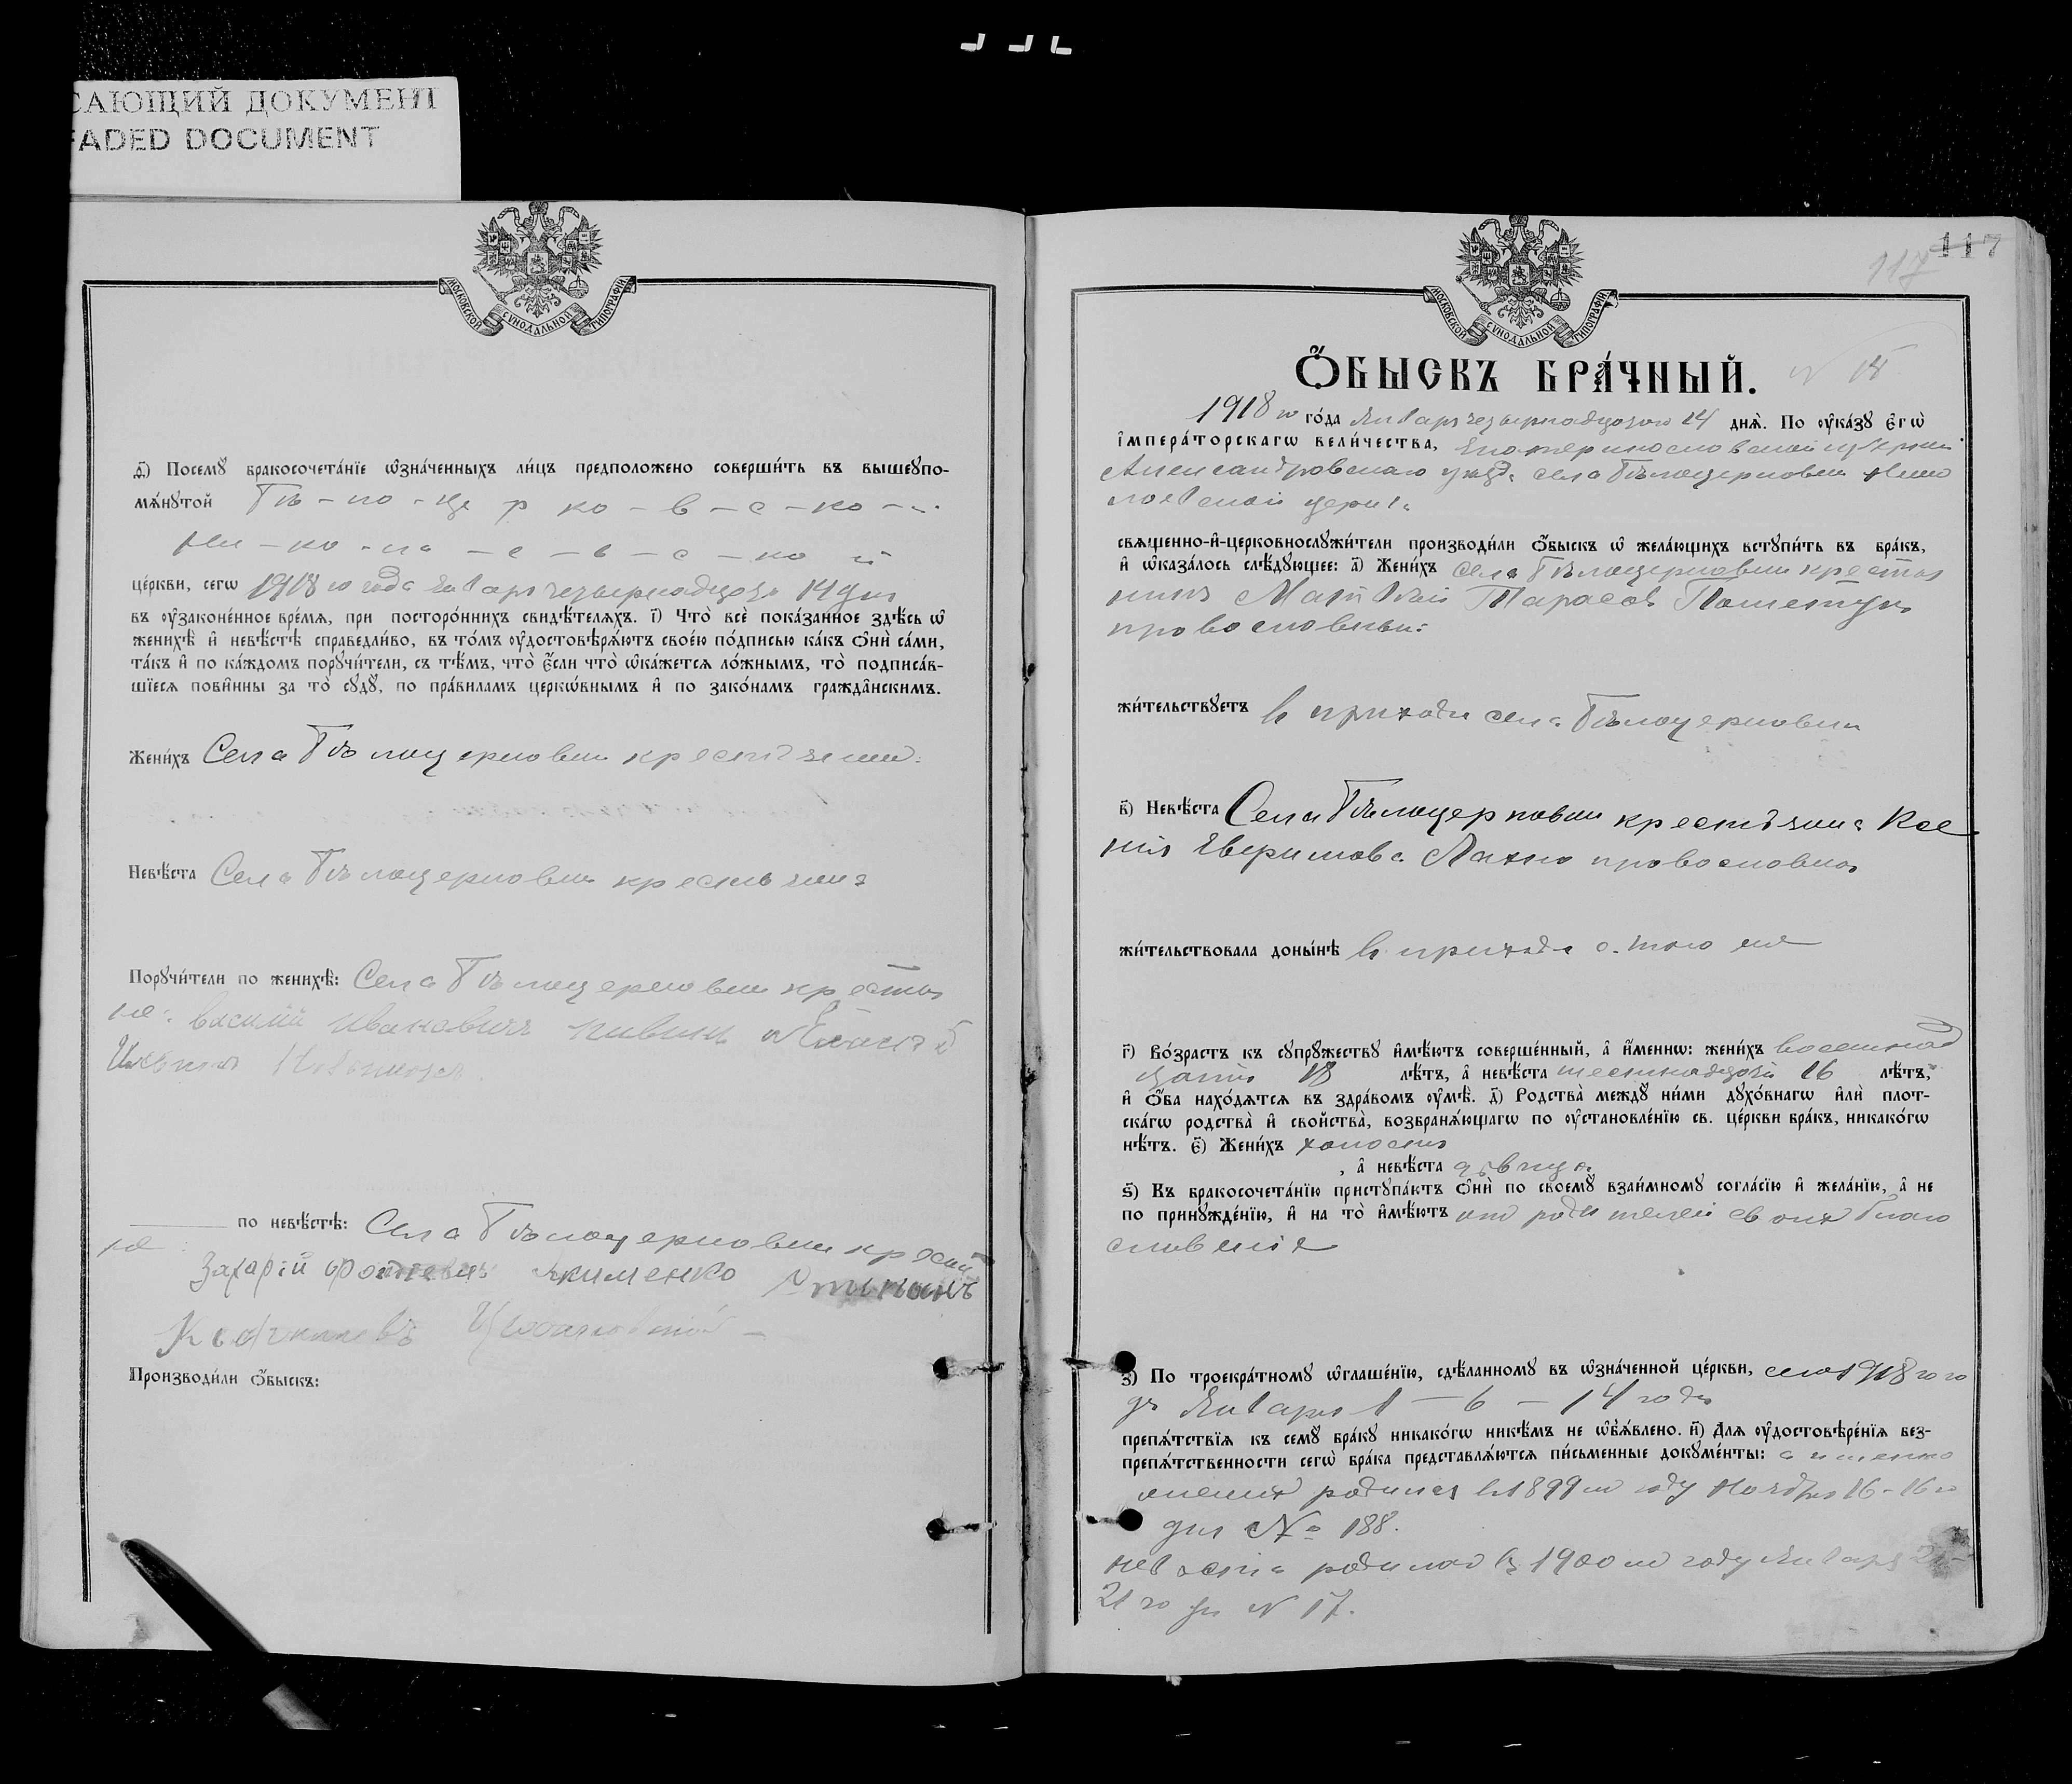 САЮЩИЙ ДОКУМЕНТ
FADED DOCUMENT
МОСКОВСКОЙ СѴНОДАЛЬНОЙ ТИПОГРАФІИ
д҃) Посемꙋ̀ бракосочета́нїе ѡ҆зна́ченныхъ ли́цъ предположено соверши́ть въ вышеꙋпо-
мѧ́нꙋтой Бѣ - ло - це р ко - в - с - ко - й
Ни - ко - ла - е - в - с - ко й
це́ркви, сегѡ 1918 го года Января четырнадцато 14 дня
въ ᲂу҆законе́нное вре́мѧ, при посторо́ннихъ свидѣ́телѧхъ. і҃) Что̀ всѐ пока́занное здѣ́сь ѡ҆
женихѣ̀ и҆ невѣ́стѣ справедли́во, въ то́мъ ᲂу҆достовѣрѧ́ютъ свое́ю по́дписью ка́къ ѻ҆нѝ са́ми,
та́къ и҆ по ка́ждомъ порꙋчи́тели, съ тѣ́мъ, что̀ є҆́сли что̀ ѡ҆ка́жетсѧ ло́жнымъ, то̀ подписа́в-
шїесѧ пови́нны за то̀ сꙋдꙋ̀, по пра́виламъ церкѡ́внымъ и҆ по зако́намъ гражда̂нскимъ.
Жени́хъ Села Бѣлоцерковки крестьянин
Невѣ́ста Села Бѣлоцерковки крестьянка
Порꙋчи́тели по женихѣ̀: Села Бѣлоцерковки крестья
не: Василій Ивановичъ
по невѣ́стѣ: Села Бѣлоцерковки крестья
не:
Захарій Якименко
Производи́ли ѻ҆́быскъ:
117
117
МОСКОВСКОЙ СѴНОДАЛЬНОЙ ТИПОГРАФІИ
Ѻ҆́БЫСКЪ БРА́ЧНЫЙ. N 14
1918 го го́да Января четырнадцатого 14 днѧ̀. По ᲂу҆ка́зꙋ є҆гѡ̀
і҆мпера́торскагѡ вели́чества, Екатеринославской губерніи
Александровскаго уезд. села Бѣлоцерковки Нико
лаевской церкв.
свѧще́нно-и҆-церковнослꙋжи́тели производи́ли ѻ҆́быскъ ѡ҆ жела́ющихъ встꙋпи́ть въ бра́къ,
и҆ ѡ҆каза́лось слѣ́дꙋющее: а҃) Жени́хъ Села Бѣлоцерковки крестья
нинъ Матвѣй Тарасов
православный:
жи́тельствꙋетъ в приходи села Бѣлоцерковки
в҃) Невѣ́ста Села Бѣлоцерковки крестьянка Ксе
нія Лахно православная
жи́тельствовала доны́нѣ в приходе
г҃) Во́зрастъ къ сꙋпрꙋ́жествꙋ и҆мѣ́ютъ соверше́нный, а҆ и҆́менно: жени́хъ восемнад
цать 18 лѣ́тъ, а҆ невѣ́ста шестнадцать 16 лѣ́тъ,
и҆ ѻ҆́ба нахо́дѧтсѧ въ здра́вомъ ᲂу҆мѣ̀. д҃) Родства̀ междꙋ̀ ни́ми дꙋхо́внагѡ и҆лѝ плот-
ска́гѡ родства̀ и҆ сво́йства̀, возбранѧ́ющагѡ по ᲂу҆становле́нїю св. це́ркви бра́къ, никако́гѡ
нѣ́тъ. є҃) Жени́хъ холость
, а҆ невѣ́ста дѣвица
ѕ҃) Къ бракосочета́нїю пристꙋпа́ютъ ѻ҆нѝ по своемꙋ̀ взаи́мномꙋ согла́сїю и҆ жела́нїю, а҆ не
по принꙋжде́нїю, и҆ на то̀ и҆мѣ́ютъ от родителей своих благо
словеніе
з҃) По троекра́тномꙋ ѡ҆глаше́нїю, сдѣ́ланномꙋ въ ѡ҆зна́ченной це́ркви, сего 1918 го го
да Января 1 - 6 - 14 года
препѧ́тствїѧ къ семꙋ̀ бра́кꙋ никако́гѡ никѣ́мъ не ѡ҆б̾ѧ́влено. и҃) Длѧ ᲂу҆достовѣре́нїѧ без-
препѧ́тственности сегѡ̀ бра́ка представлѧ́ютсѧ пи́сьменные докꙋме́нты: а именно
жених родился в 1899 м году Ноября 16 - 16 го
дня № 188.
невеста родилас в 1900 м году Января 21 -
21 го дн N 17.